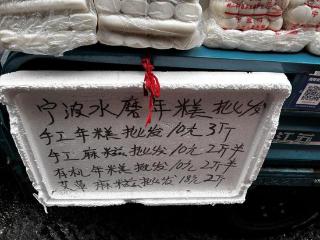 宁波水磨年糕批发
手工年糕批发10元3斤
手工麻糍批发10元2斤半
有机年糕批发10元2斤半
艾草麻糍批发18元2斤